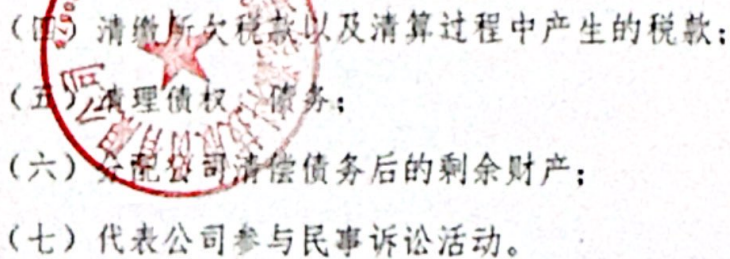 （四）清缴所欠税款以及清算过程中产生的税款；
（五）清理债权、债务；
（六）分配公司清偿债务后的剩余财产；
（七）代表公司参与民事诉讼活动。